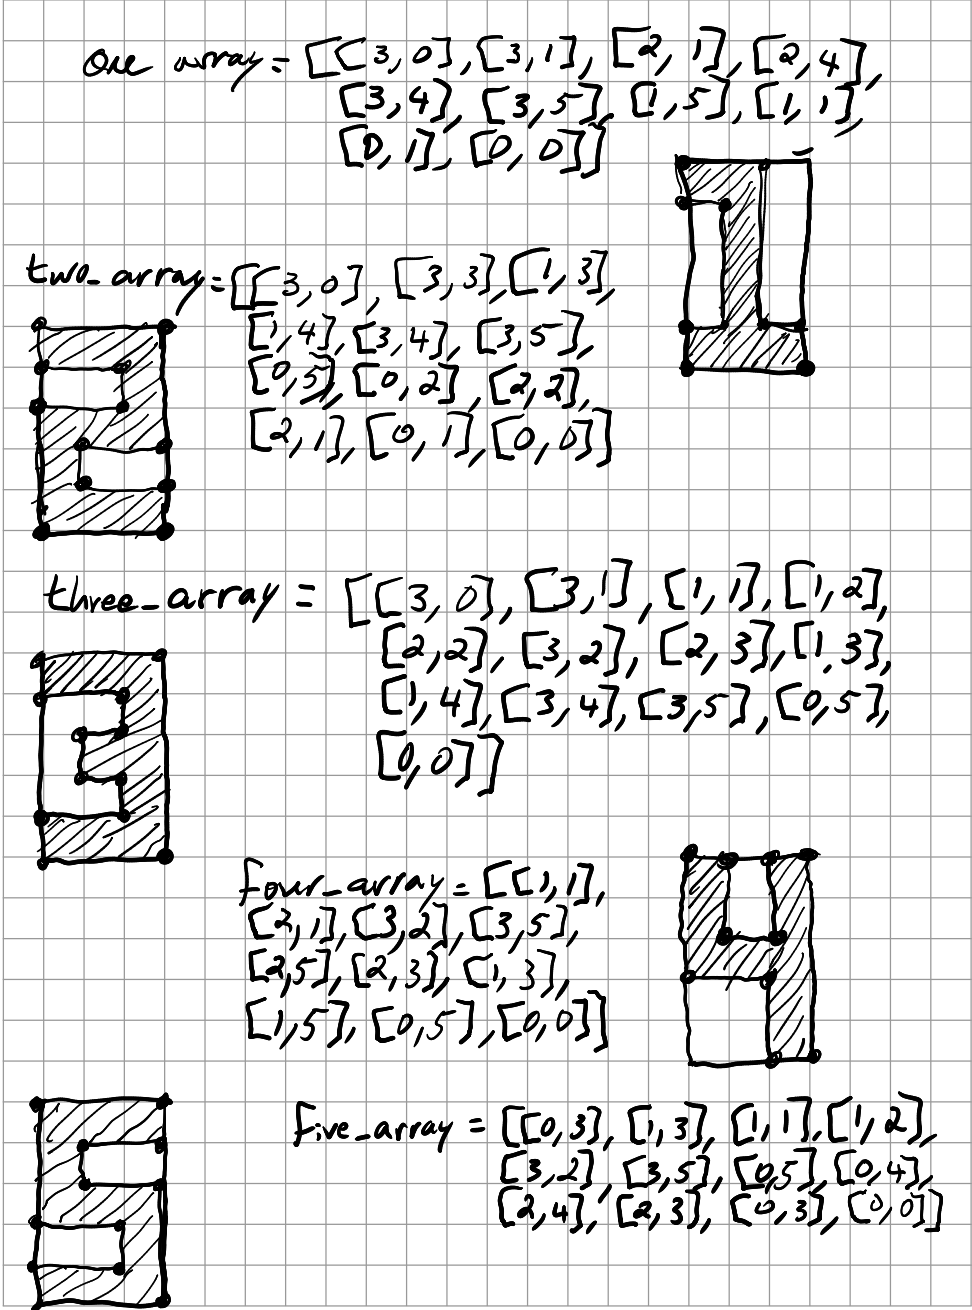 One array = [[3,0],[3,1],[2,1],[2,4],
[3,4],[3,5],[1,5],[1,1],
[0,1],[0,0]]
two_array = [[3,0],[3,3],[1,3],
[1,4],[3,4],[3,5],
[0,5],[0,2],[2,2],
[2,1],[0,1],[0,0]]
three_array = [[3,0],[3,1],[1,1],[1,2],
[2,2],[3,2],[2,3],[1,3],
[1,4],[3,4],[3,5],[0,5],
[0,0]]
four_array = [[1,1],
[2,1],[3,2],[3,5],
[2,5],[2,3],[1,3],
[1,5],[0,5],[0,0]]
five_array = [[0,3],[1,3],[1,1],[1,2],
[3,2],[3,5],[0,5],[0,4],
[2,4],[2,3],[0,3],[0,0]]